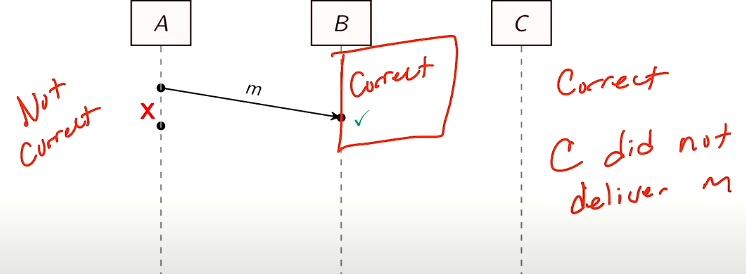 A
B
C
Not
Correct
X
m
Correct
✓
Correct
C did not
deliver m